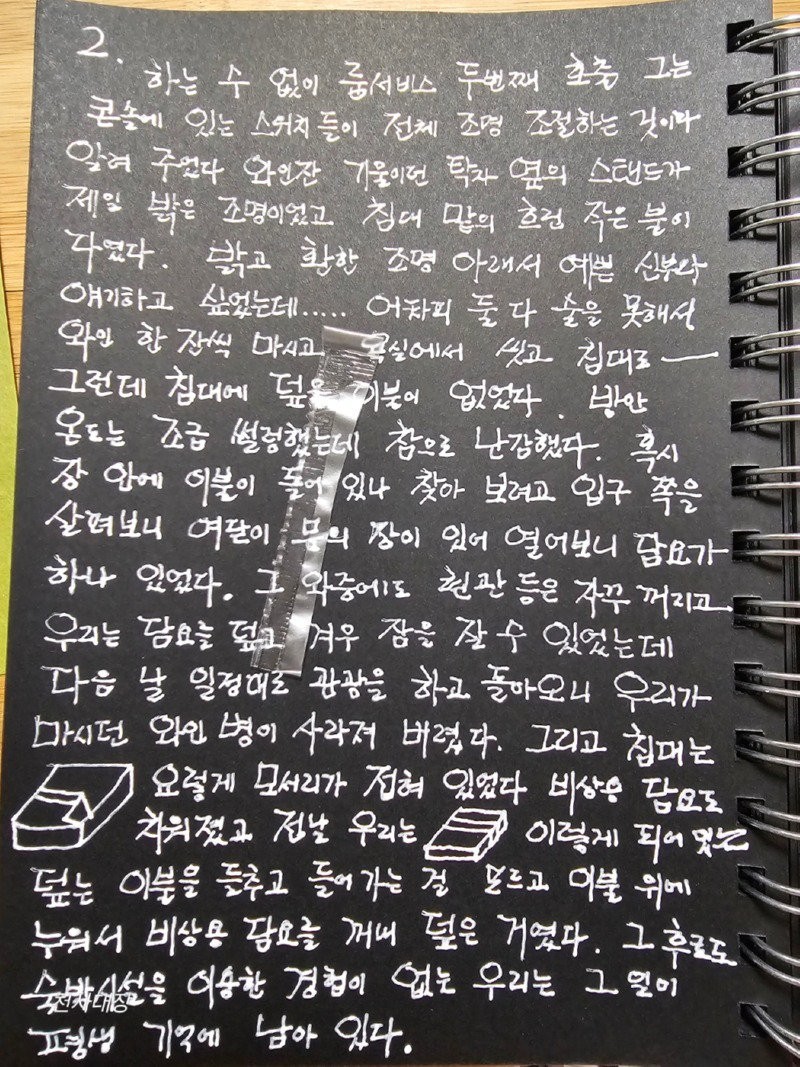 2.
하는 수 없이 룸서비스 두번째 호출 그는
콘솔에 있는 스위치들이 전체 조명 조절하는 것이다
알려 주었다 와인잔 기울이던 탁자 옆의 스탠드가
제일 밝은 조명이었고 침대 맡의 흐런 작은 불이
다였다. 밝고 환한 조명 아래서 예쁜 신부와
얘기하고 싶었는데..... 어차피 둘 다 술을 못해서
와인 한 잔씩 마시고 욕실에서 씻고 침대로 —
그런데 침대에 덮을 이불이 없었다. 방안
온도는 조금 썰렁했는데 참으로 난감했다. 혹시
장 안에 이불이 들어 있나 찾아 보려고 입구 쪽을
살펴보니 여닫이 문의 장이 있어 열어보니 담요가
하나 있었다. 그 와중에도 현관 등은 자꾸 꺼리고
우리는 담요를 덮고 겨우 잠을 잘 수 있었는데
다음 날 일정대로 관광을 하고 돌아오니 우리가
마시던 와인 병이 사라져 버렸다. 그리고 침대는
요렇게 모서리가 접혀 있었다 비상용 담요도
치워졌고 전날 우리는 이렇게 되어 있는
덮는 이불을 들추고 들어가는 걸 모르고 이불 위에
누워서 비상용 담요를 꺼내 덮은 거였다. 그 후로도
숙박시설을 이용한 경험이 없는 우리는 그 일이
평생 기억에 남아 있다.